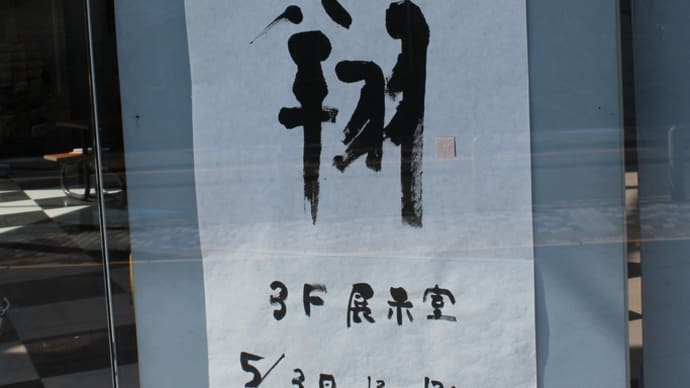 翔
3F 展示室
5/3